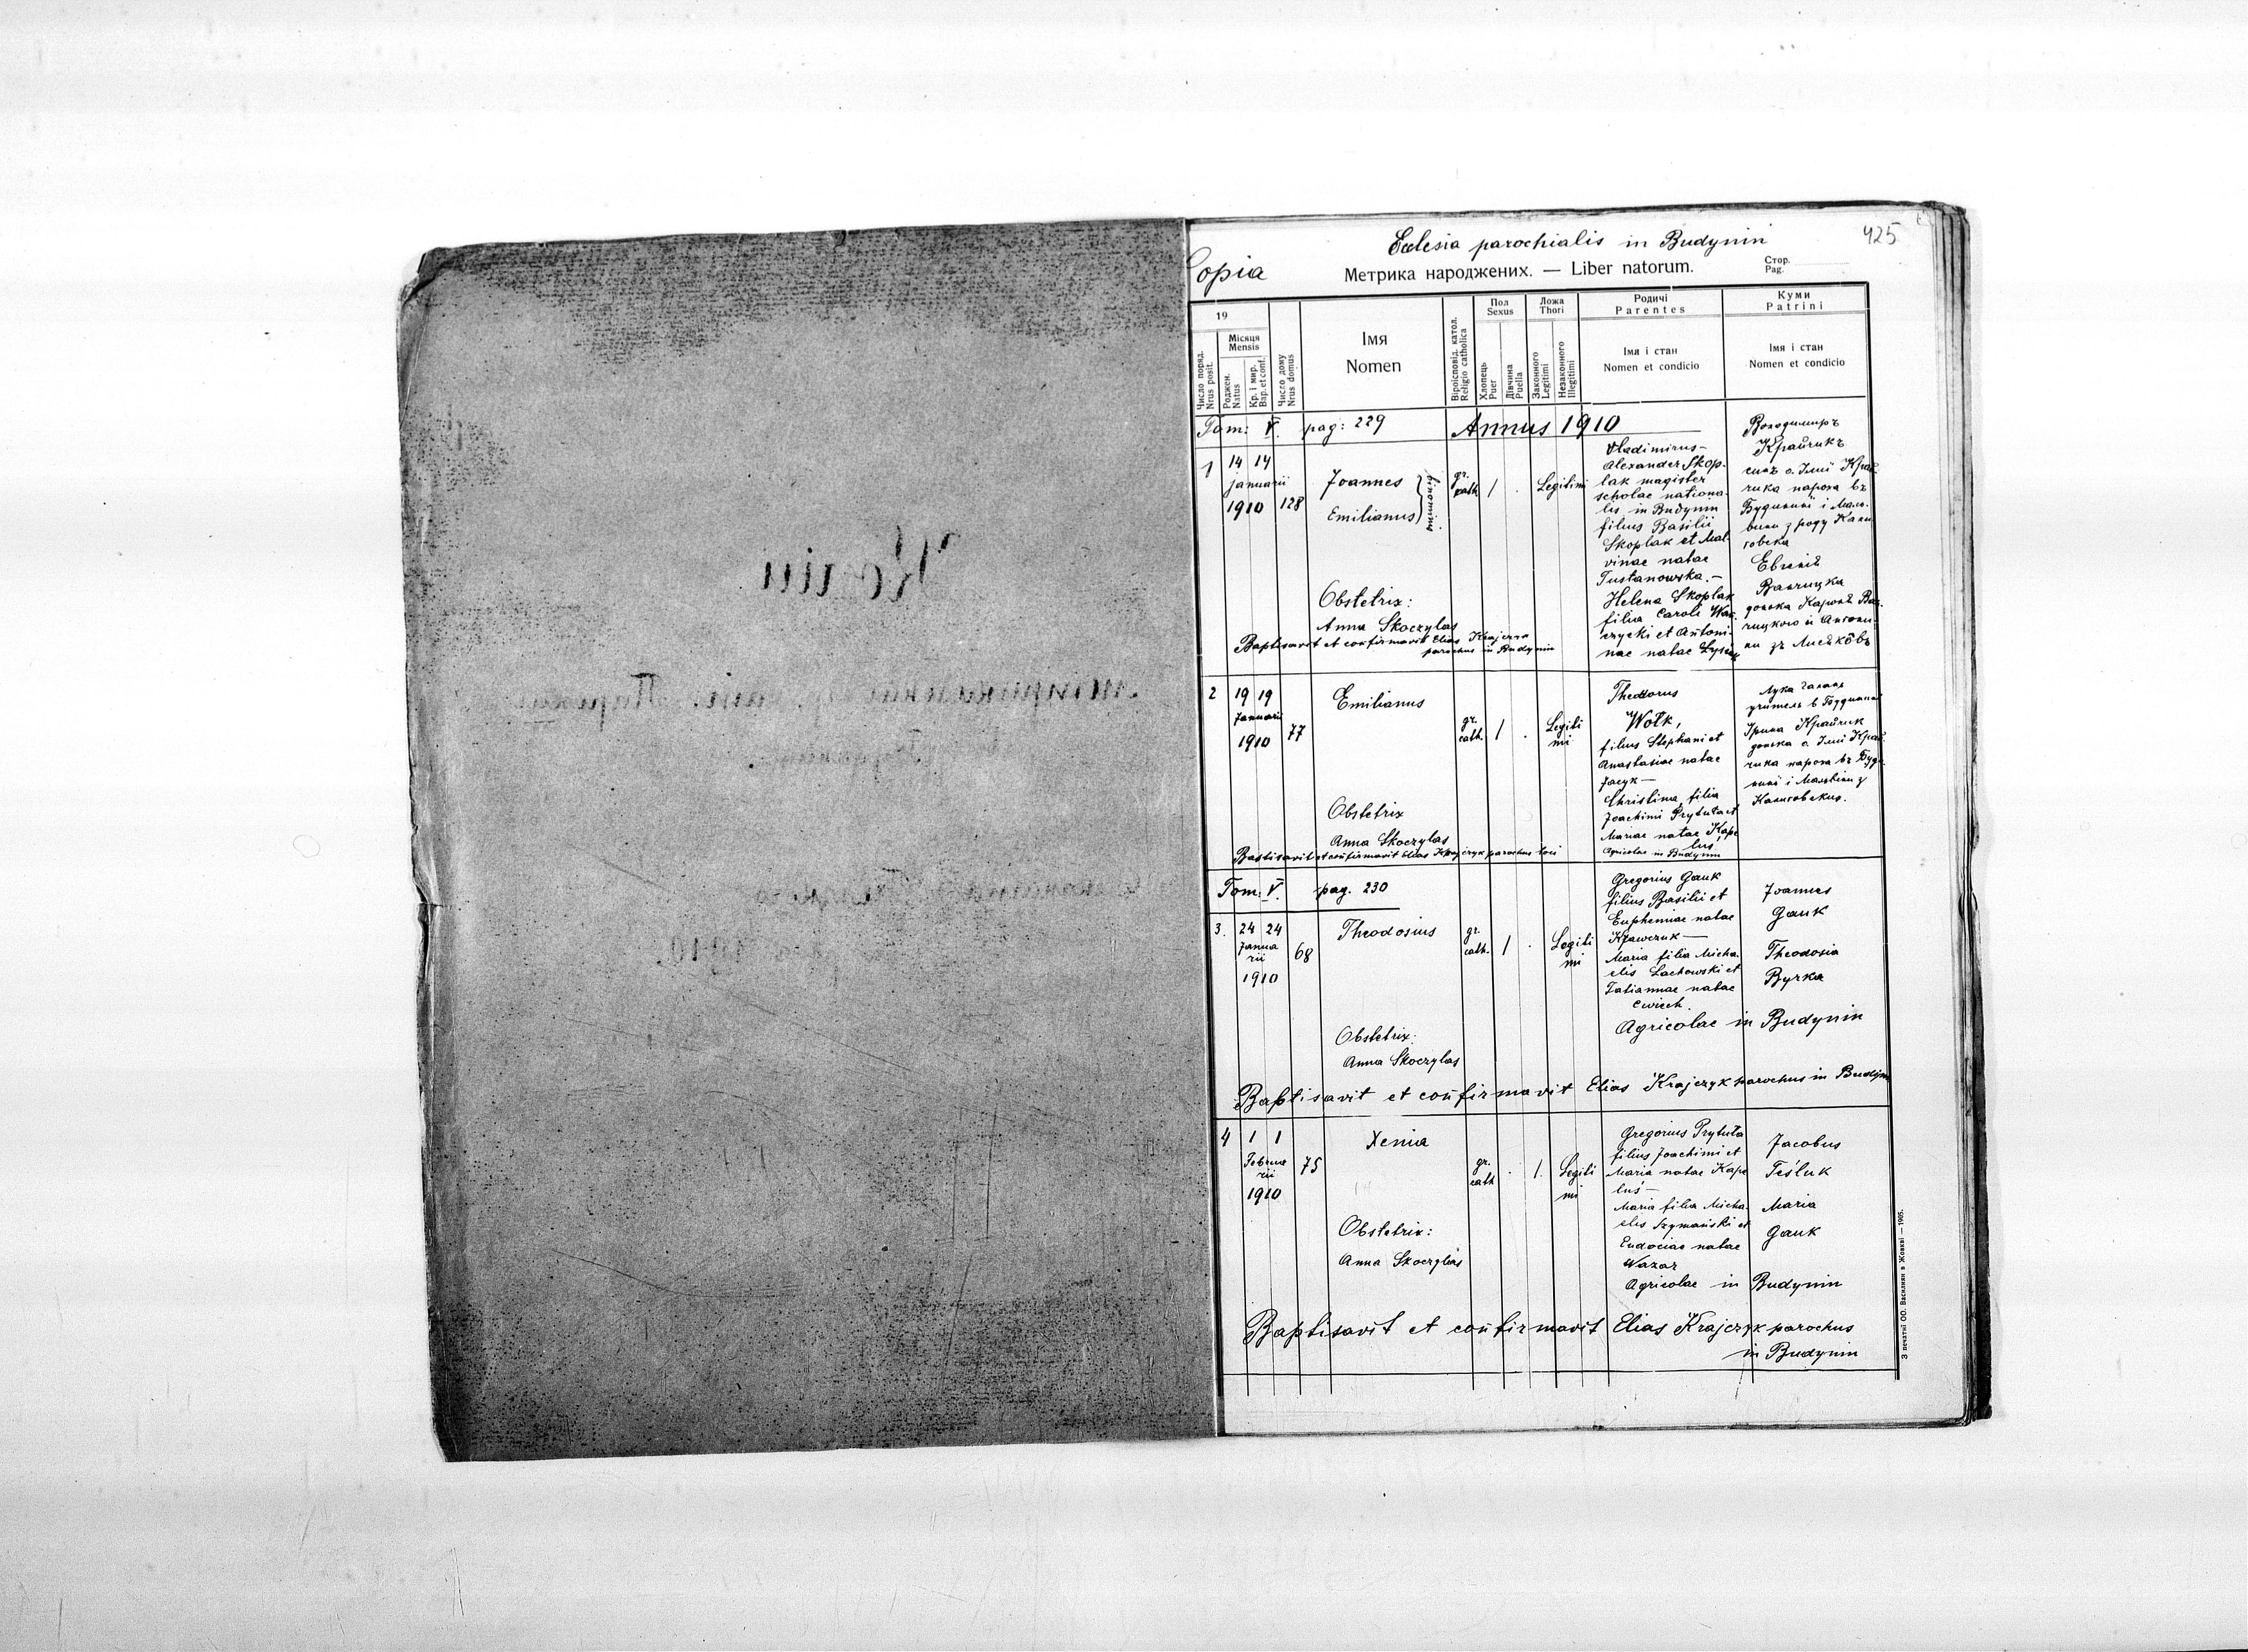 Копіи
1910.
425
Ecclesia parochialis in Budynin
Copia
Метрика народжених. — Liber natorum.
Стор.
Pag.
19
Число поряд.
Nrus posit.
Місяця
Mensis
Роджен.
Natus
Кр. і мир.
Bap. et conf.
Число дому
Nrus domus
Імя
Nomen
Віроісповід. катол.
Religio catholica
Пол
Sexus
Хлопець
Puer
Дівчина
Puella
Ложа
Thori
Законного
Legitimi
Незаконного
Illegitimi
Родичі
Parentes
Імя і стан
Nomen et condicio
Куми
Patrini
Імя і стан
Nomen et condicio
Tom: V. pag: 229 Annus 1910
1
14 14
januarii
1910
128
Joannes
Emilianus
binomius
gr.
cath.
/ .
Legitimi
Vladimirus-
Alexander Skop-
lak magister
scholae nationa-
lis in Budynin
filius Basilii
Skoplak et Mal-
vinae natae
Tustanowska.—
Helena Skoplak
filia Caroli Wań-
czycki et Antoni-
nae natae Lysiak
Володимиръ
Крайчикъ
сынъ о. Іліи Край-
чика пароха въ
Будынинѣ і Маль-
вини з роду Кали-
говска
Евгенія
Ванчицка
донька Кароля Ван-
чицкого и Антони-
ни зъ Лисяковъ
Obstetrix:
Anna Skoczylas
Baptisavit et confirmavit Elias Krajczyk
parochus in Budynin
2
19 19
Januarii
1910
77
Emilianus
gr.
cath.
/ .
Legiti
mi
Theodorus
Wołk,
filius Stephani et
Anastasiae natae
Jacyk—
Christina filia
Joachimi Prytuła et
Mariae natae Kape
luś
Agricolae in Budynin
Лука
учитель в Будининѣ
Ірина Крайчик
донька о. Іліи Край-
чика пароха въ Буди-
нинѣ і Мальвіни з
Калиговских.
Obstetrix
Anna Skoczylas
Baptisavit et confirmavit Elias Krajczyk parochus loci
Tom. V. pag. 230
3.
24 24
Janua
rii
1910
68
Theodosius
gr.
cath.
/ .
Legiti
mi
Gregorius Gauk
filius Basilii et
Euphemiae natae
Krawczuk—
Maria filia Micha-
elis Lachowski et
Tatiannae natae
Cwiech.
Agricolae in Budynin
Joannes
Gauk
Theodosia
Byrka
Obstetrix:
Anna Skoczylas
Baptisavit et confirmavit Elias Krajczyk parochus in Budynin
4
1 1
Februa
rii
1910
75
Xenia
gr.
cath
. 1.
Legiti
mi
Gregorius Prytuła
filius Joachimi et
Maria natae Kape
luś—
Maria filia Micha-
elis Szymański et
Eudociae natae
Nazar
Agricolae in Budynin
Jacobus
Teśluk
Maria
Gauk
Obstetrix:
Anna Skoczylas
Baptisavit et confirmavit Elias Krajczyk parochus
in Budynin
З печатні ОО. Василиян в Жовкві — 1905.